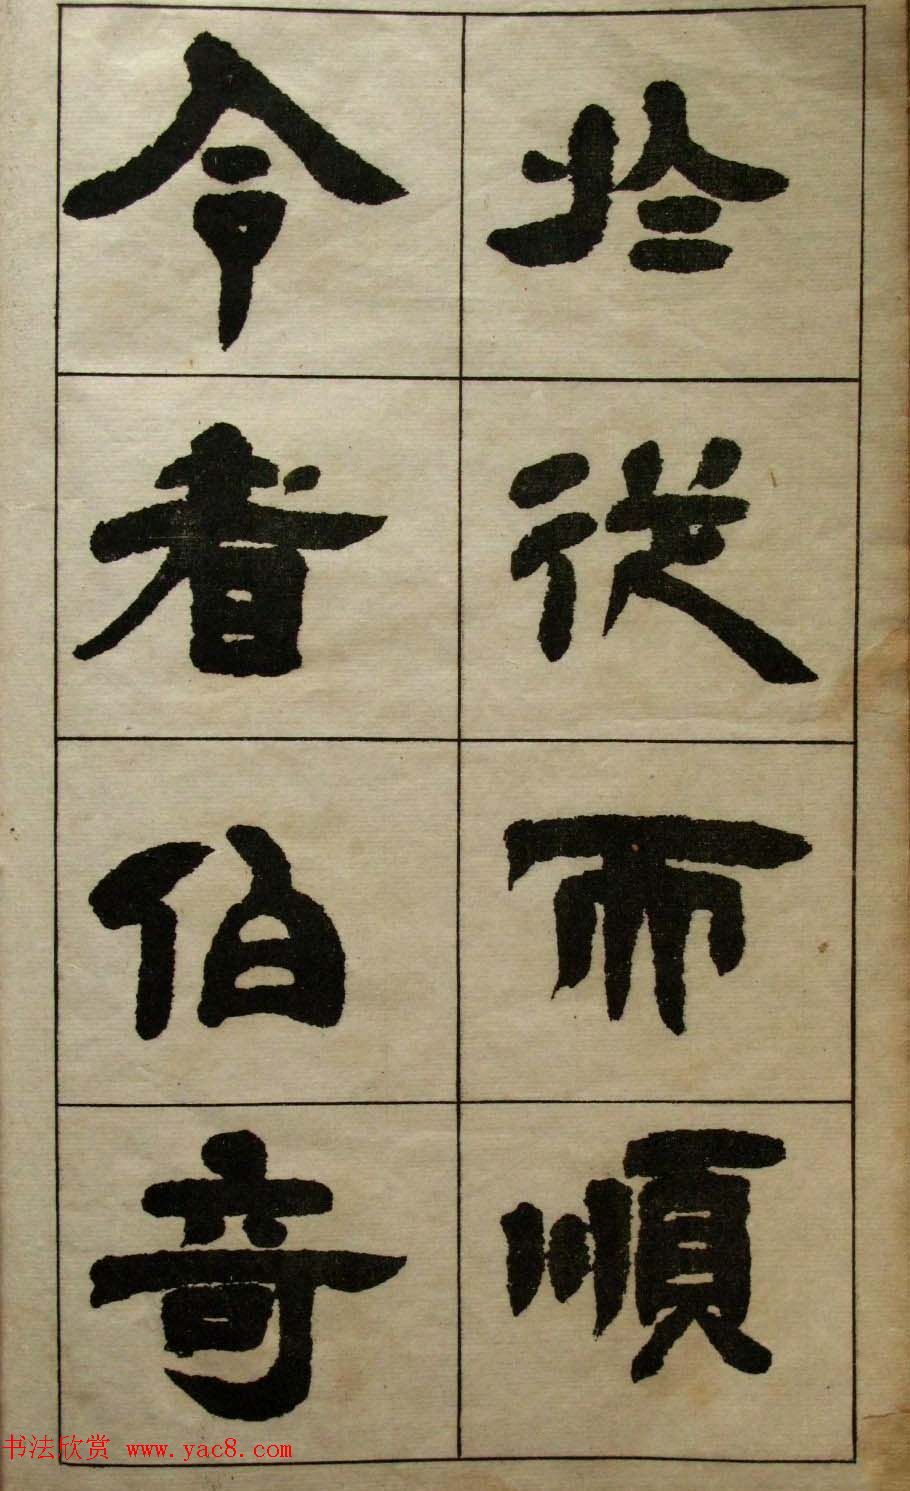 於從而順
今看伯奇
书法欣赏 www.yac8.com